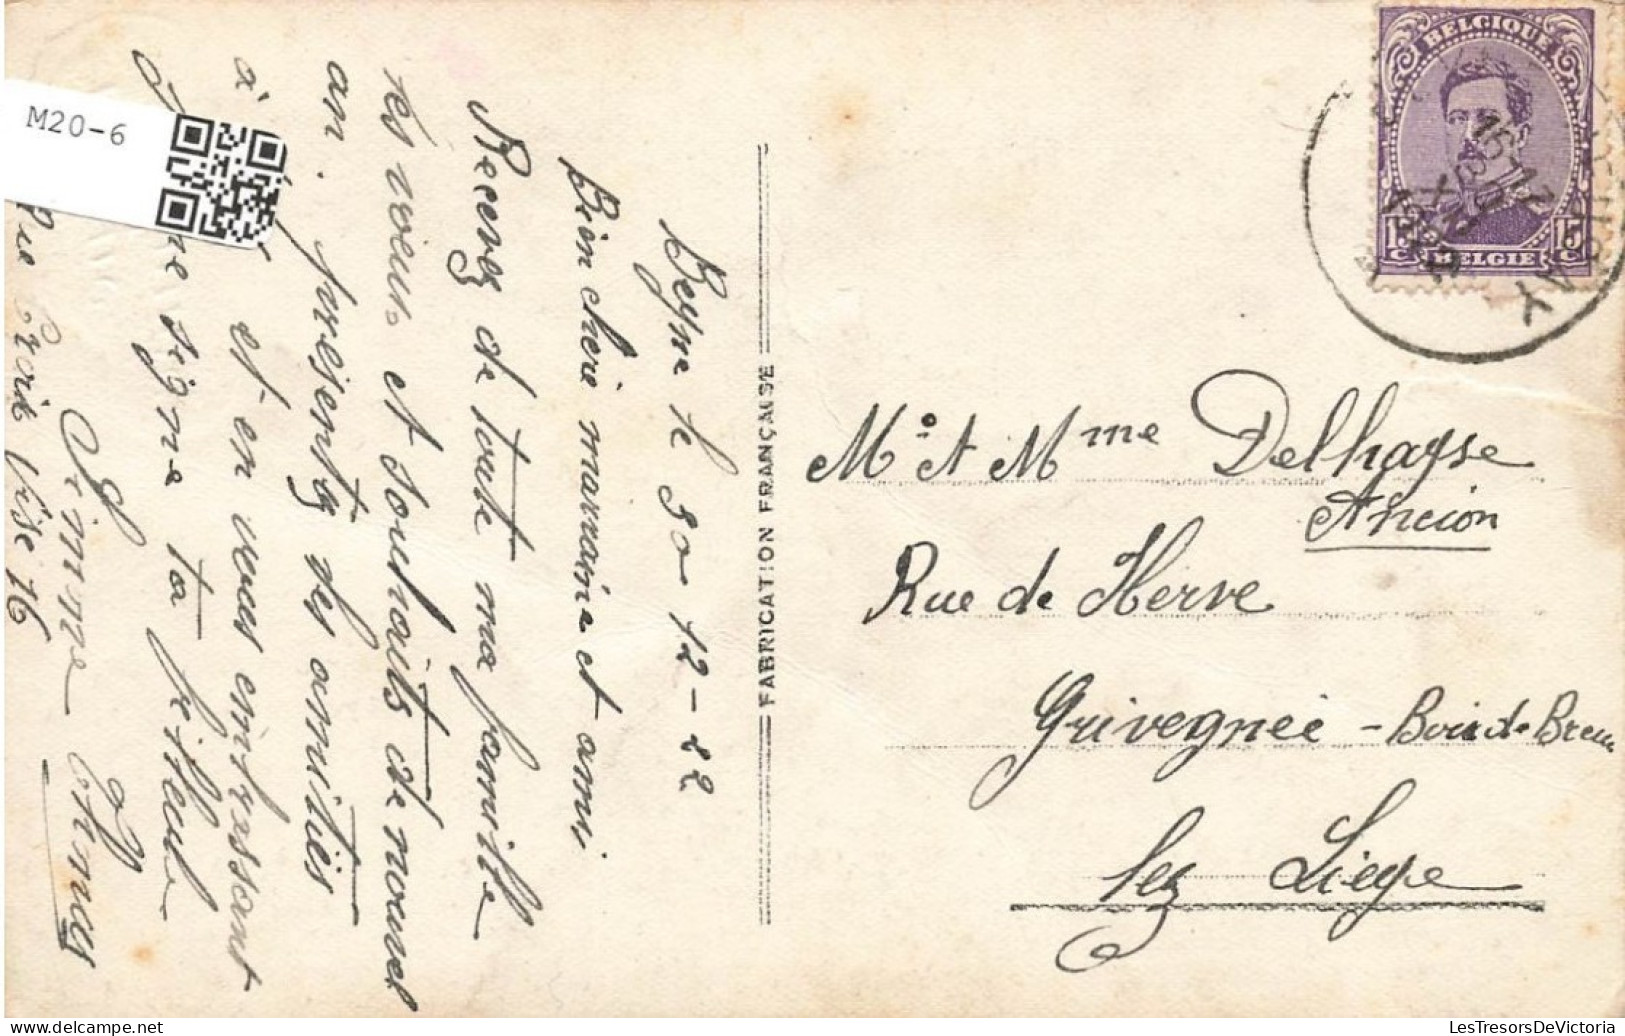 M20-6
BELGIQUE
15 C 15 C
BELGIE
Beyne le 30-12-22
Bien chere marraine et ami
Recevez de toute ma famille
les voeux et souhaits de nouvel
an. présentez des amitiés
à et en vous embrassant
signe ta filleule
Rue Visé 76
FABRICATION FRANÇAISE
Mr et Mme Delhayse
Ancion
Rue de Herve
Grivegnée - Bois de Breux
lez Liege
LesTresorsDeVictoria
https://www.delcampe.net